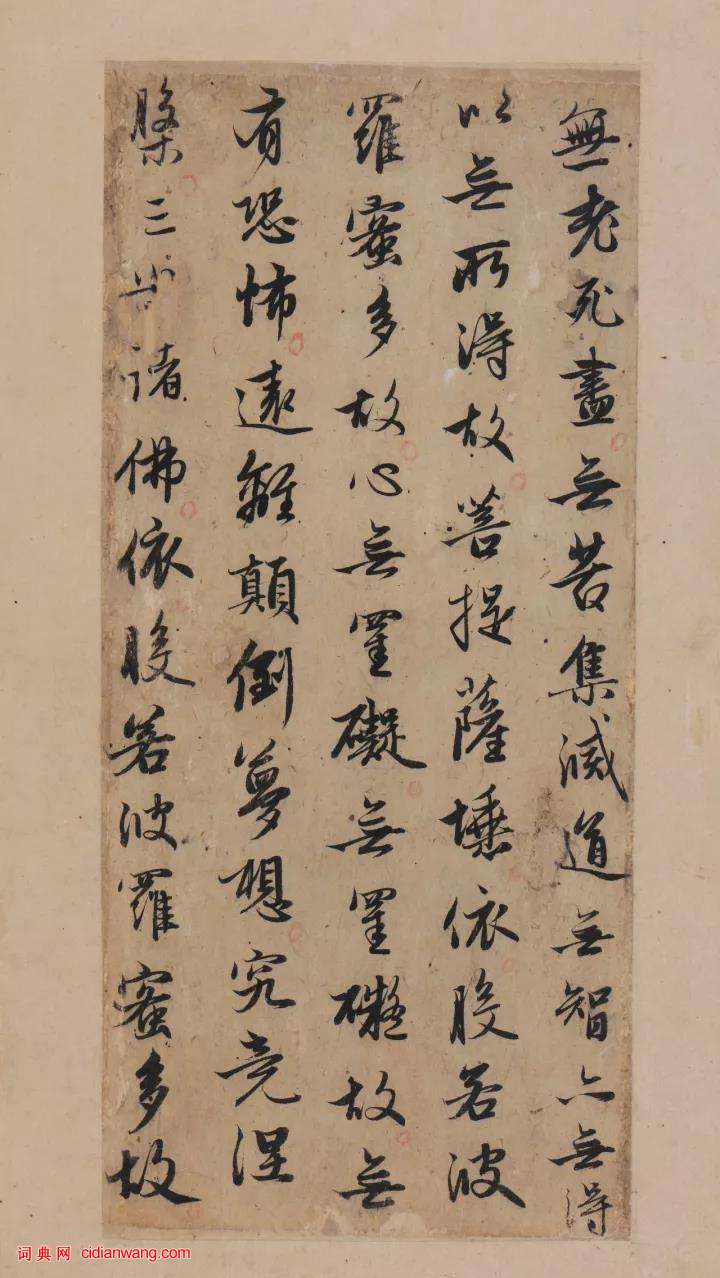 無老死盡無苦集滅道無智亦無得
以無所得故菩提薩埵依般若波
羅蜜多故心無罣礙無罣礙故無
有恐怖遠離顛倒夢想究竟涅
槃三世諸佛依般若波羅蜜多故
词典网 cidianwang.com